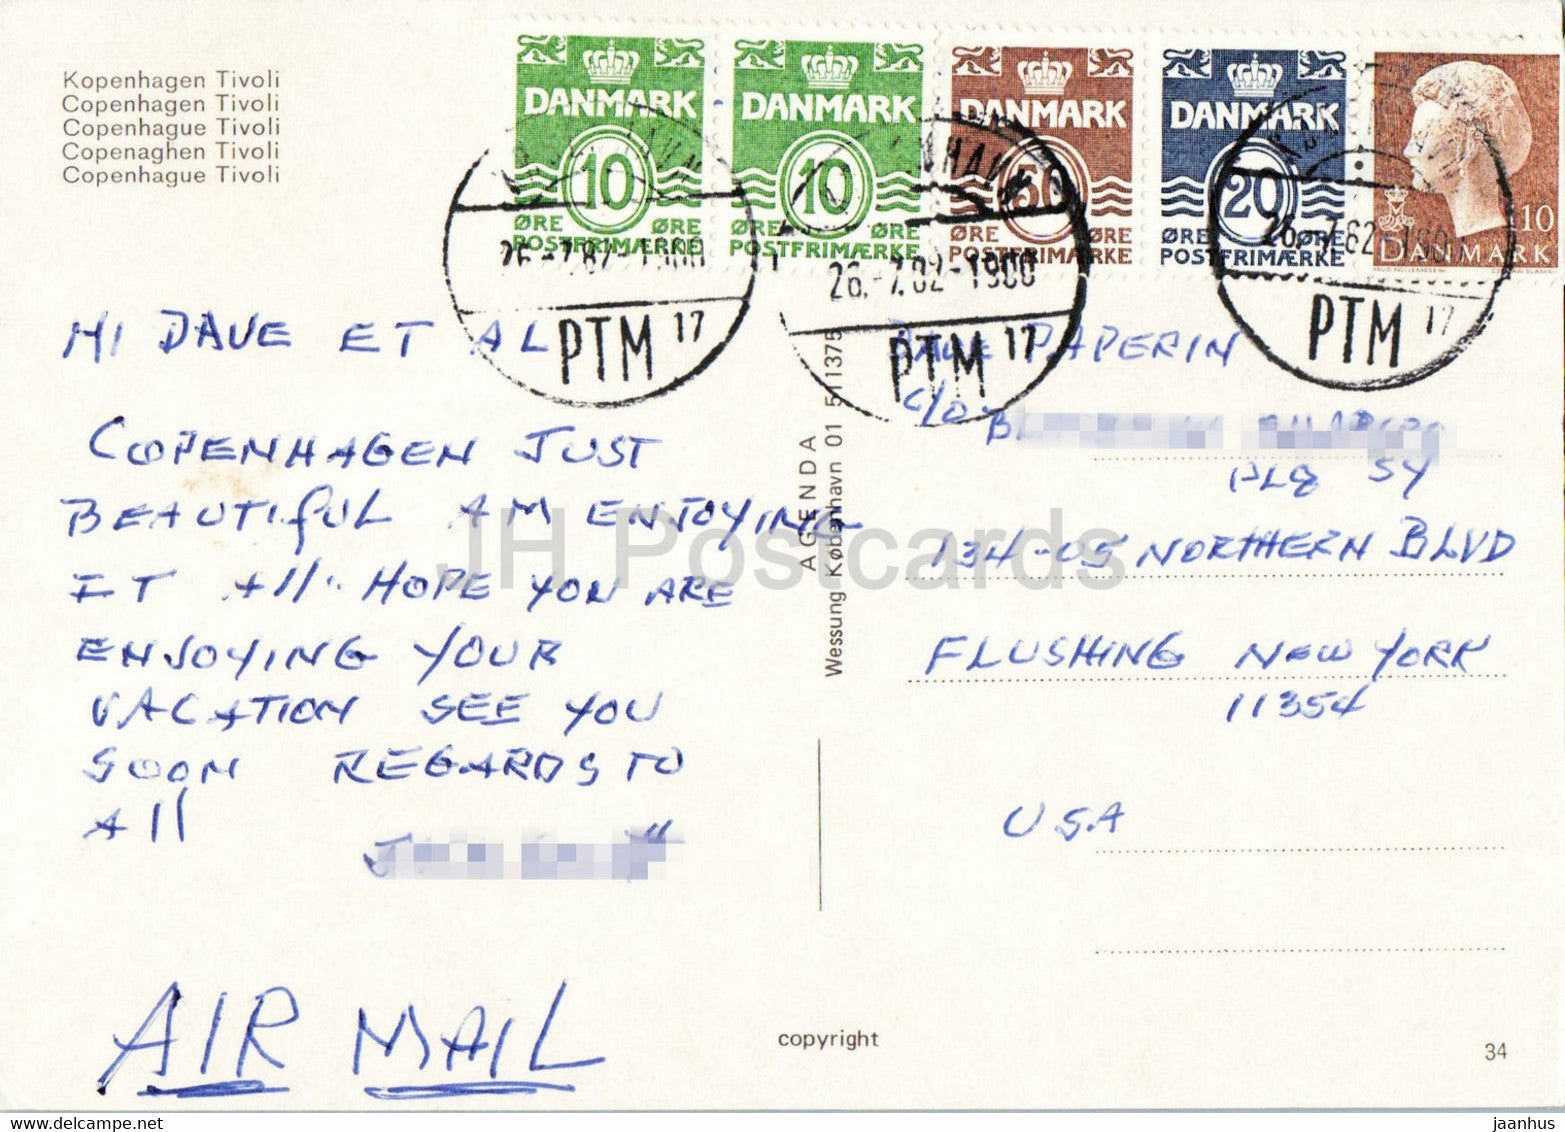 Kopenhagen Tivoli
Copenhagen Tivoli
Copenhague Tivoli
Copenaghen Tivoli
Copenhague Tivoli
DANMARK
10
ØRE ØRE
POSTFRIMÆRKE
DANMARK
10
ØRE ØRE
POSTFRIMÆRKE
DANMARK
50
ØRE ØRE
POSTFRIMÆRKE
DANMARK
20
ØRE ØRE
POSTFRIMÆRKE
10
DANMARK
26.-7.82-1900
PTM 17
26.-7.82-1900
PTM 17
26.-7.82-190
PTM 17
HI DAVE ET AL
COPENHAGEN JUST
BEAUTIFUL AM ENJOYING
IT All. HOPE YOU ARE
ENJOYING YOUR
VACATION SEE YOU
SOON REGARDS TO
All
AIR MAIL
AGENDA
Wessung København 01 511375
DAVE PAPERIN
C/O
BLQ 54
134-05 NORTHERN BLVD
FLUSHING NEW YORK
11354
USA
copyright
34
JH Postcards
www.delcampe.net
jaanhus